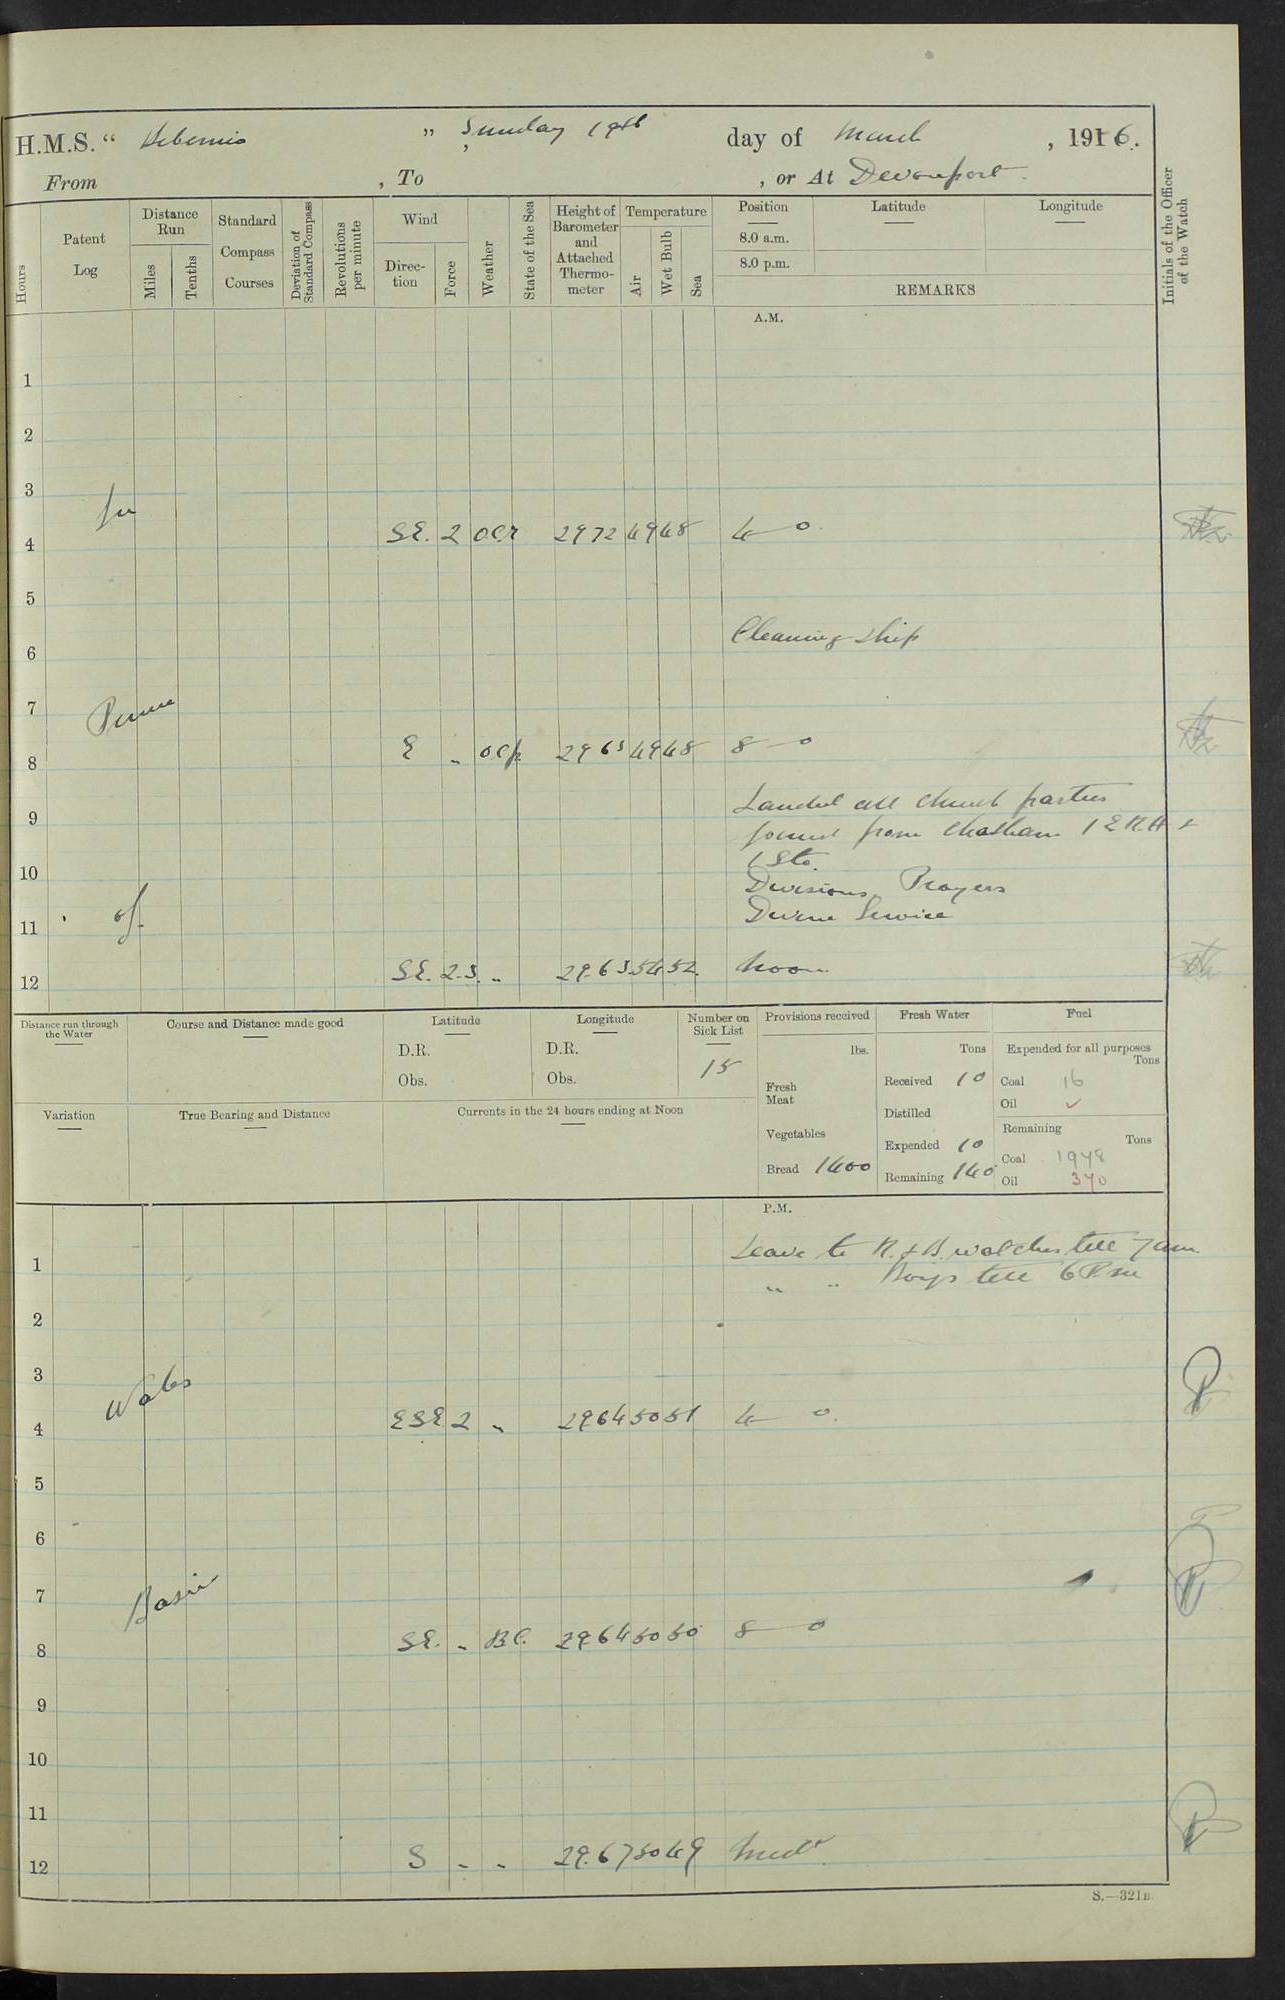 H.M.S. "Hibernia" , Sunday 19th day of March , 1916.
From , To , or At Devonport.
Hours
Patent Log
Distance Run
Miles
Tenths
Standard Compass Courses
Deviation of Standard Compass
Revolutions per minute
Wind
Direction
Force
Weather
State of the Sea
Height of Barometer and Attached Thermometer
Temperature
Air
Wet Bulb
Sea
Position
8.0 a.m.
8.0 p.m.
Latitude
Longitude
REMARKS
Initials of the Officer of the Watch
A.M.
1
2
3
In
4 SE. 2 ocr 2972 49 48 4—0
5
Cleaning ship
6
7
Prince
8 E " ocp 2965 49 48 8—0
Landed all church parties
9
Joined from Chatham 1 ERA &
1 Sto.
10
Divisions, Prayers
of
Divine Service
11
12 SE. 2.3. " 29.65 54 52. Noon.
Distance run through the Water
Course and Distance made good
Latitude
D.R.
Obs.
Longitude
D.R.
Obs.
Number on Sick List
15
Provisions received
lbs.
Fresh Meat
Vegetables
Bread 1400
Fresh Water
Tons
Received 10
Distilled
Expended 10
Remaining 140
Fuel
Expended for all purposes
Tons
Coal 16
Oil ✓
Remaining
Tons
Coal 1948
Oil 370
Variation
True Bearing and Distance
Currents in the 24 hours ending at Noon
P.M.
Leave to R. & B. watches till 7am.
1
" " Boys till 6 P.m
2
3
Wales
4 ESE 2 " 2964 50 51 4—0.
5
6
7
Basin
8 SE. " BC. 2964 50 50 8—0
9
10
11
12 S " " 29.67 50 49 Midt
S.—321B.